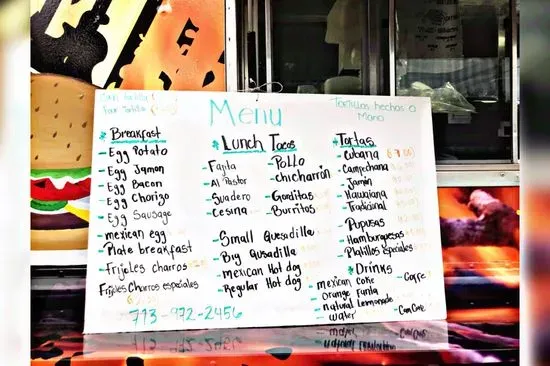 Menu
Tortillas hechos a
Mano
Breakfast
- Egg Potato
- Egg Jamon
- Egg Bacon
- Egg Chorizo
- Egg Sausage
- mexican egg
- Plate breakfast
- Frijeles charros
Frijeles Charros especiales
713-972-2456
Lunch Tacos
- Fajita
- Al Pastor
- Suadero
- Cesina
- Pollo
- Chicharrón
- Gorditas
- Burritos
- Small Quesadilla
- Big Quesadilla
- mexican Hot dog
- Regular Hot dog
- Tortas
- Cubana
- Campechana
- Jamin
- Hawaiana
- Tradicional
- Pupusas
- Hamburgesas
- Platillos especiales
Drinks
- mexican coke
- Orange Funta
- natural Lemonade
- Water
- Caffe
- Can Coke